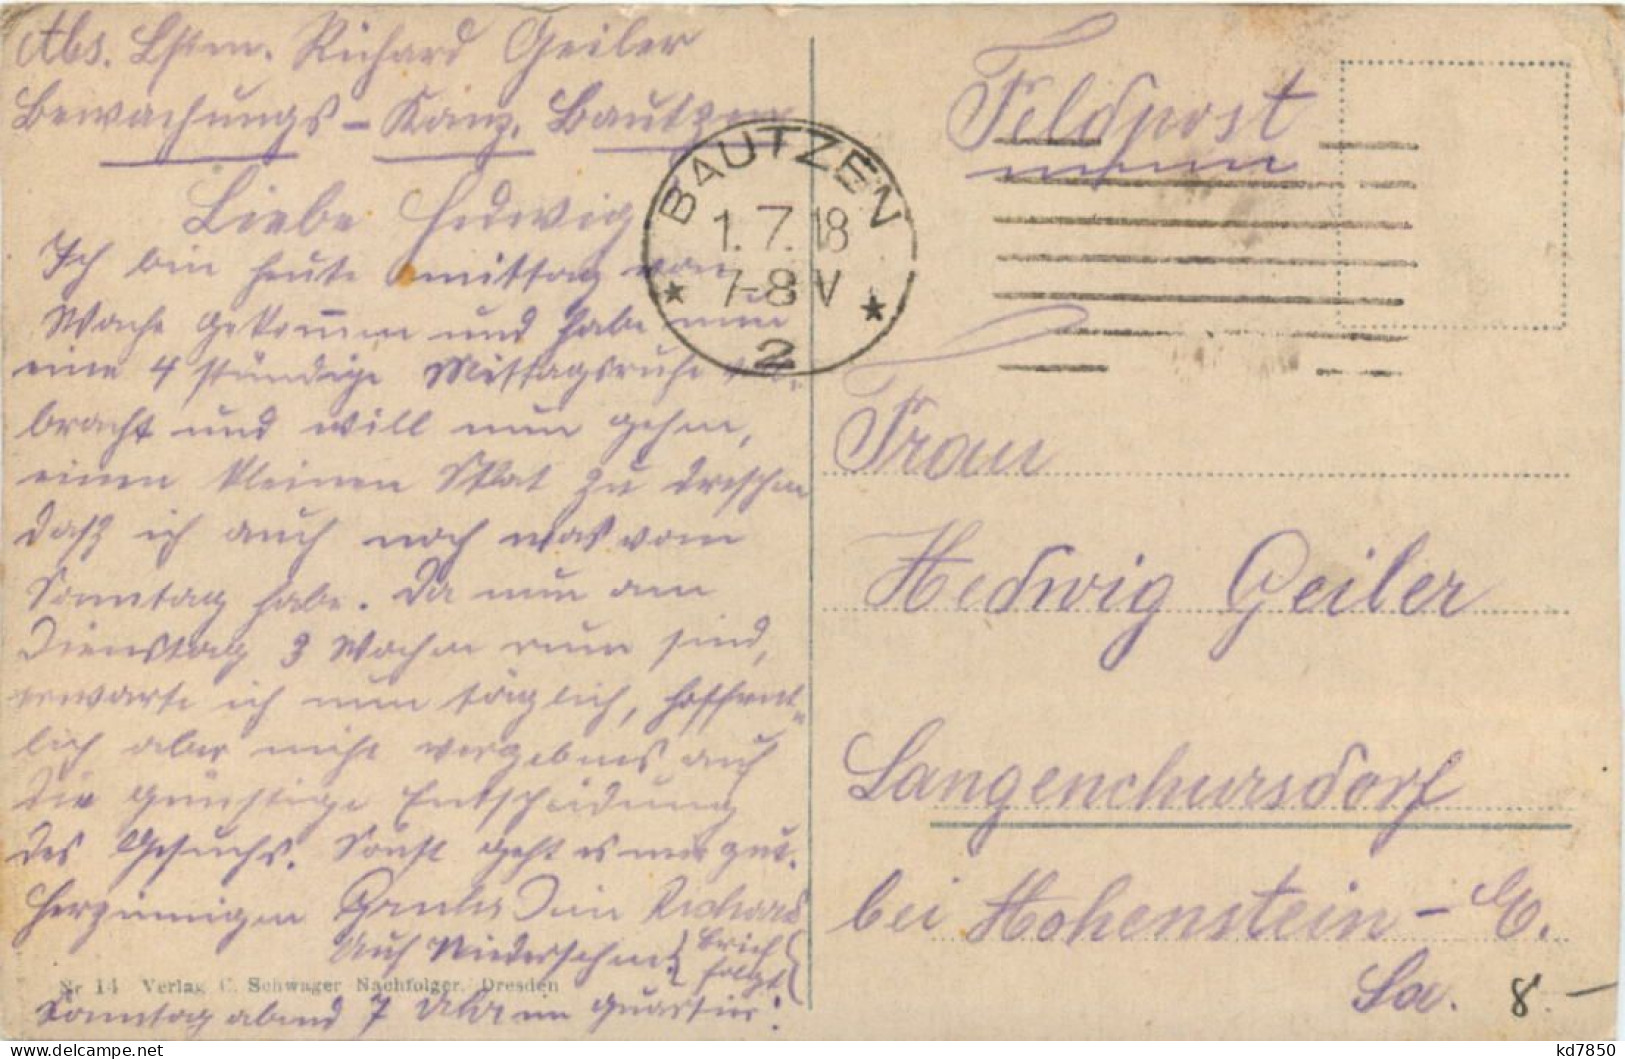 Abs. Lstm. Richard Geiler
Bewachungs-Komp. Bautzen
Liebe Hedwig
Ich bin heute mittag von
Wache gekommen und habe nun
eine 4 stündige Mittagsruhe ver-
bracht und will nun gehen,
einen kleinen Skat zu dreschen
daß ich auch noch was vom
Sonntag habe. Da nun am
Dienstag 3 Wochen rum sind,
erwarte ich nun täglich, hoffent-
lich aber nicht vergebens auf
die günstige Entscheidung
des Gesuchs. Sonst geht es mir gut.
Herzinnigen Gruß Dein Richard
Auf Wiedersehen! Brief
folgt
Nr 14 Verlag C. Schwager Nachfolger. Dresden
Sonntag abend 7 Uhr im Quartier!
BAUTZEN
1.7.18
7-8 V
2
Feldpost
Frau
Hedwig Geiler
Langenchursdorf
bei Hohenstein-E.
Sa.
8.-
kd7850